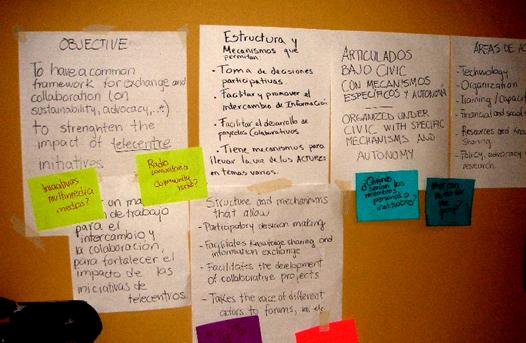 OBJECTIVE
To have a common
framework for exchange and
collaboration (on
sustainability, advocacy,...)
to strenghten the
impact of telecentre
initiatives
Iniciativas
multimedia
Radio
community
un ma
de trabajo
para el
intercambio y
la colaboración,
para fortalecer el
impacto de las
iniciativas de
telecentros.
Estructura y
Mecanismos que
permitan
- Toma de decisiones
participativas.
- Facilitar y promover el
intercambio de Información
- Facilitar el desarrollo de
proyectos Colaborativos
- Tiene mecanismos para
llevar la voz de los Actores
en temas varios.
Structure and mechanisms
that allow
- Participatory decision making
- Facilitates knowledge sharing and
information exchange
- Facilitates the development
of collaborative projects
- Takes the voice of different
actors to forums, etc
ARTICULADOS
BAJO CIVIC
CON MECANISMOS
ESPECÍFICOS Y AUTONOMÍA
ORGANIZED UNDER
CIVIC WITH SPECIFIC
MECHANISMS AND
AUTONOMY
¿Quiénes
serían los
miembros?
personas o
instituciones?
ÁREAS DE AC
- Technology
- Organization
- Training / Capaci
- Financial and social
- Resources and Know
Sharing
- Policy, advocacy
research.